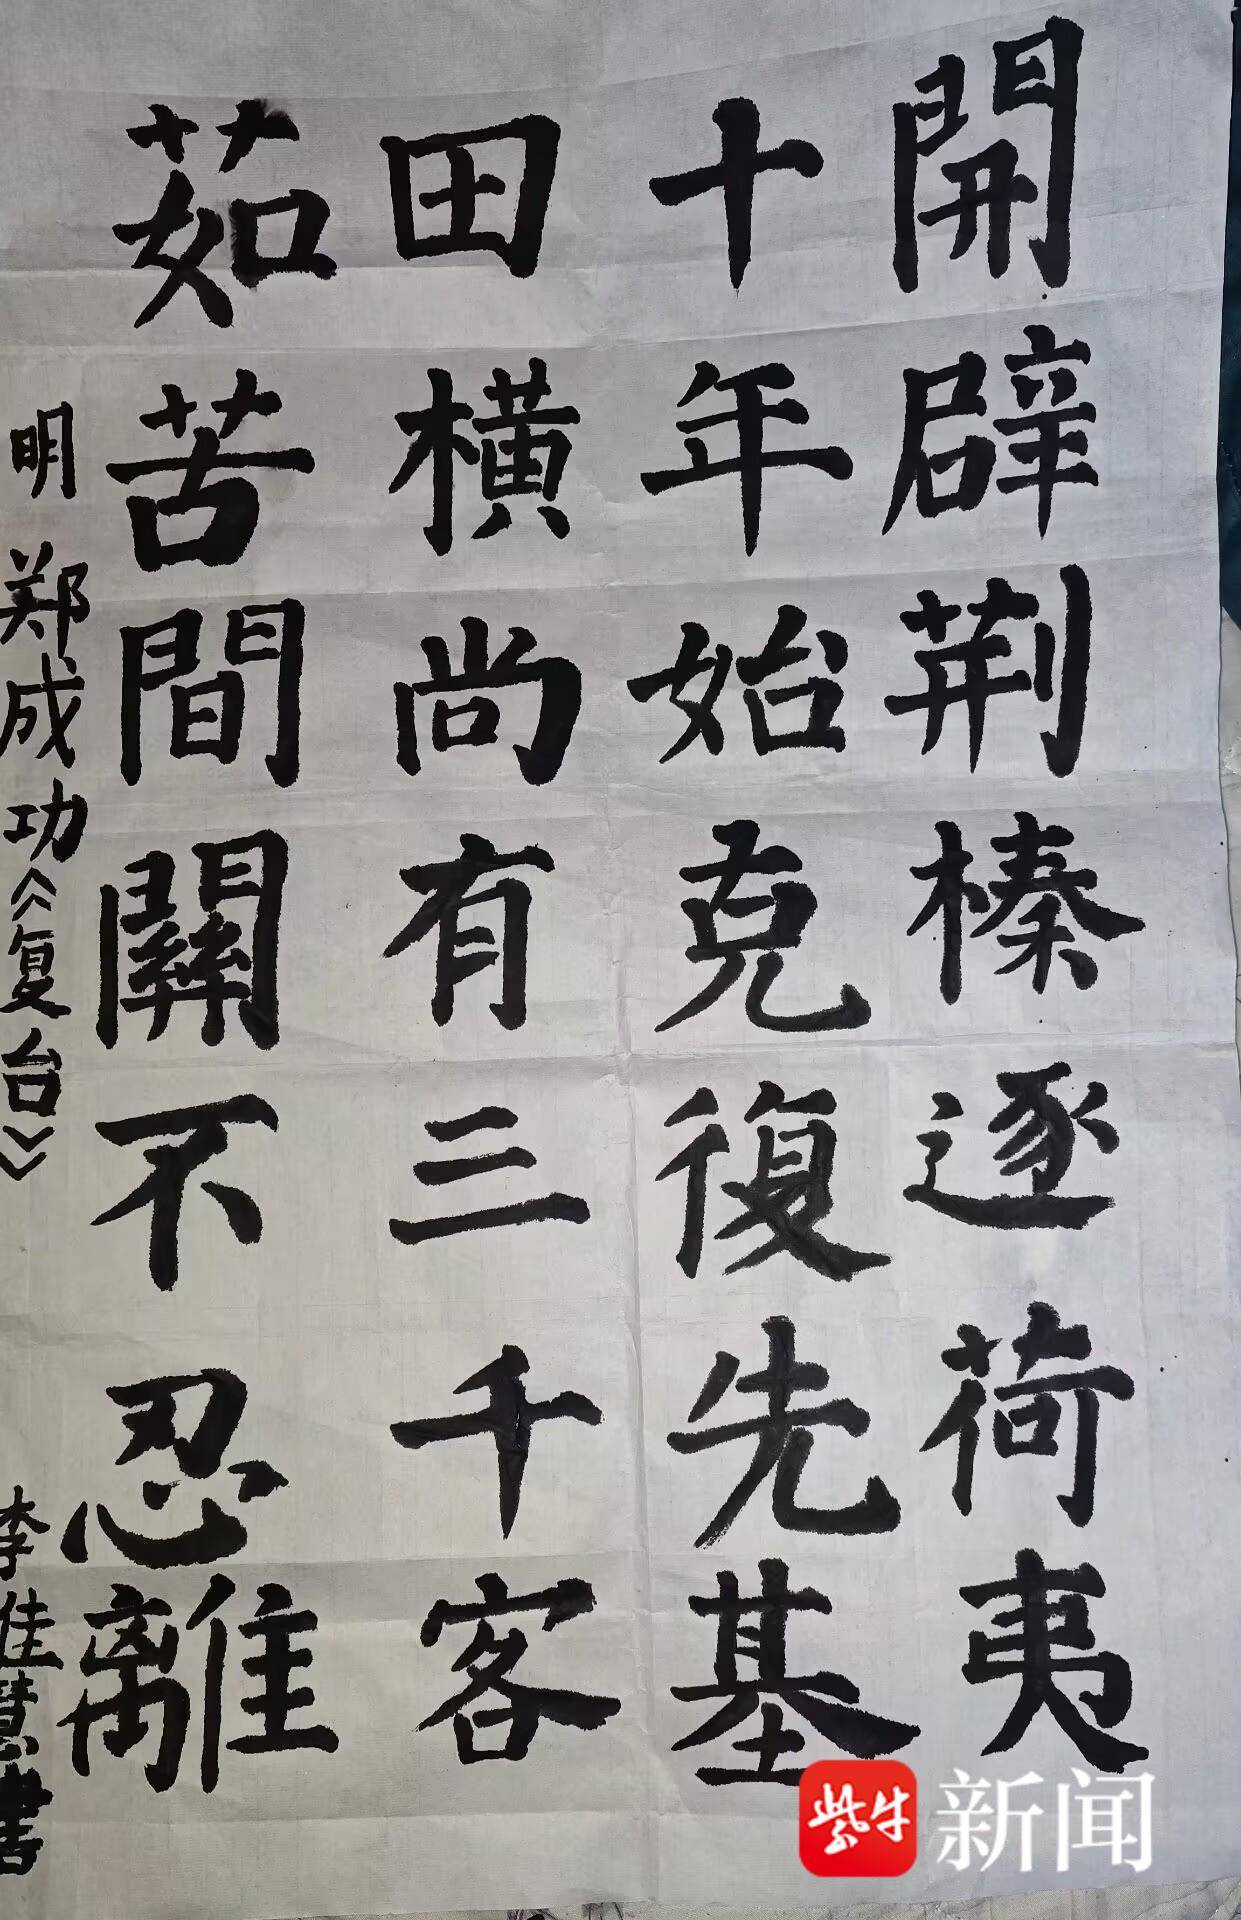 開辟荆榛逐荷夷
十年始克復先基
田橫尚有三千客
茹苦間關不忍離
明 郑成功《复台》
李佳慧書
紫牛新闻